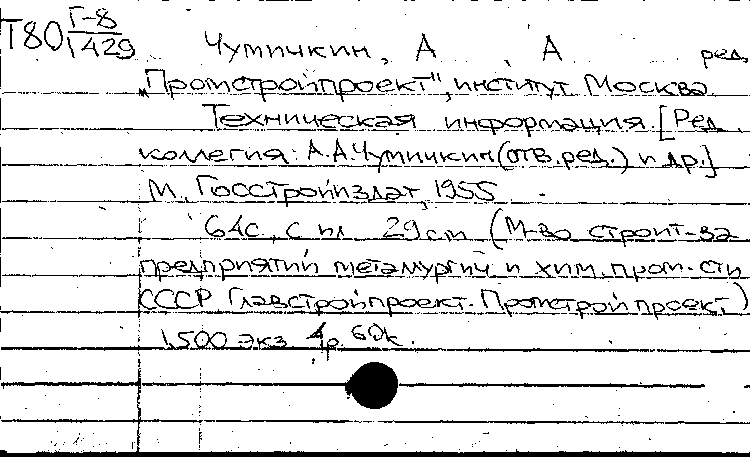 Т80 Г-8
1429
Чумичкин, А. А. ред.
"Промстройпроект", институт. Москва.
Техническая информация. [Ред.
коллегия: А.А.Чумичкин (отв.ред.) и др.]
М., Госстройиздат, 1955
64с., с ил. 29см. (М-во строит-ва
предприятий металургич. и хим. пром-сти
СССР Главстройпроект. Промстройпроект)
1.500 экз. 4р. 60к.